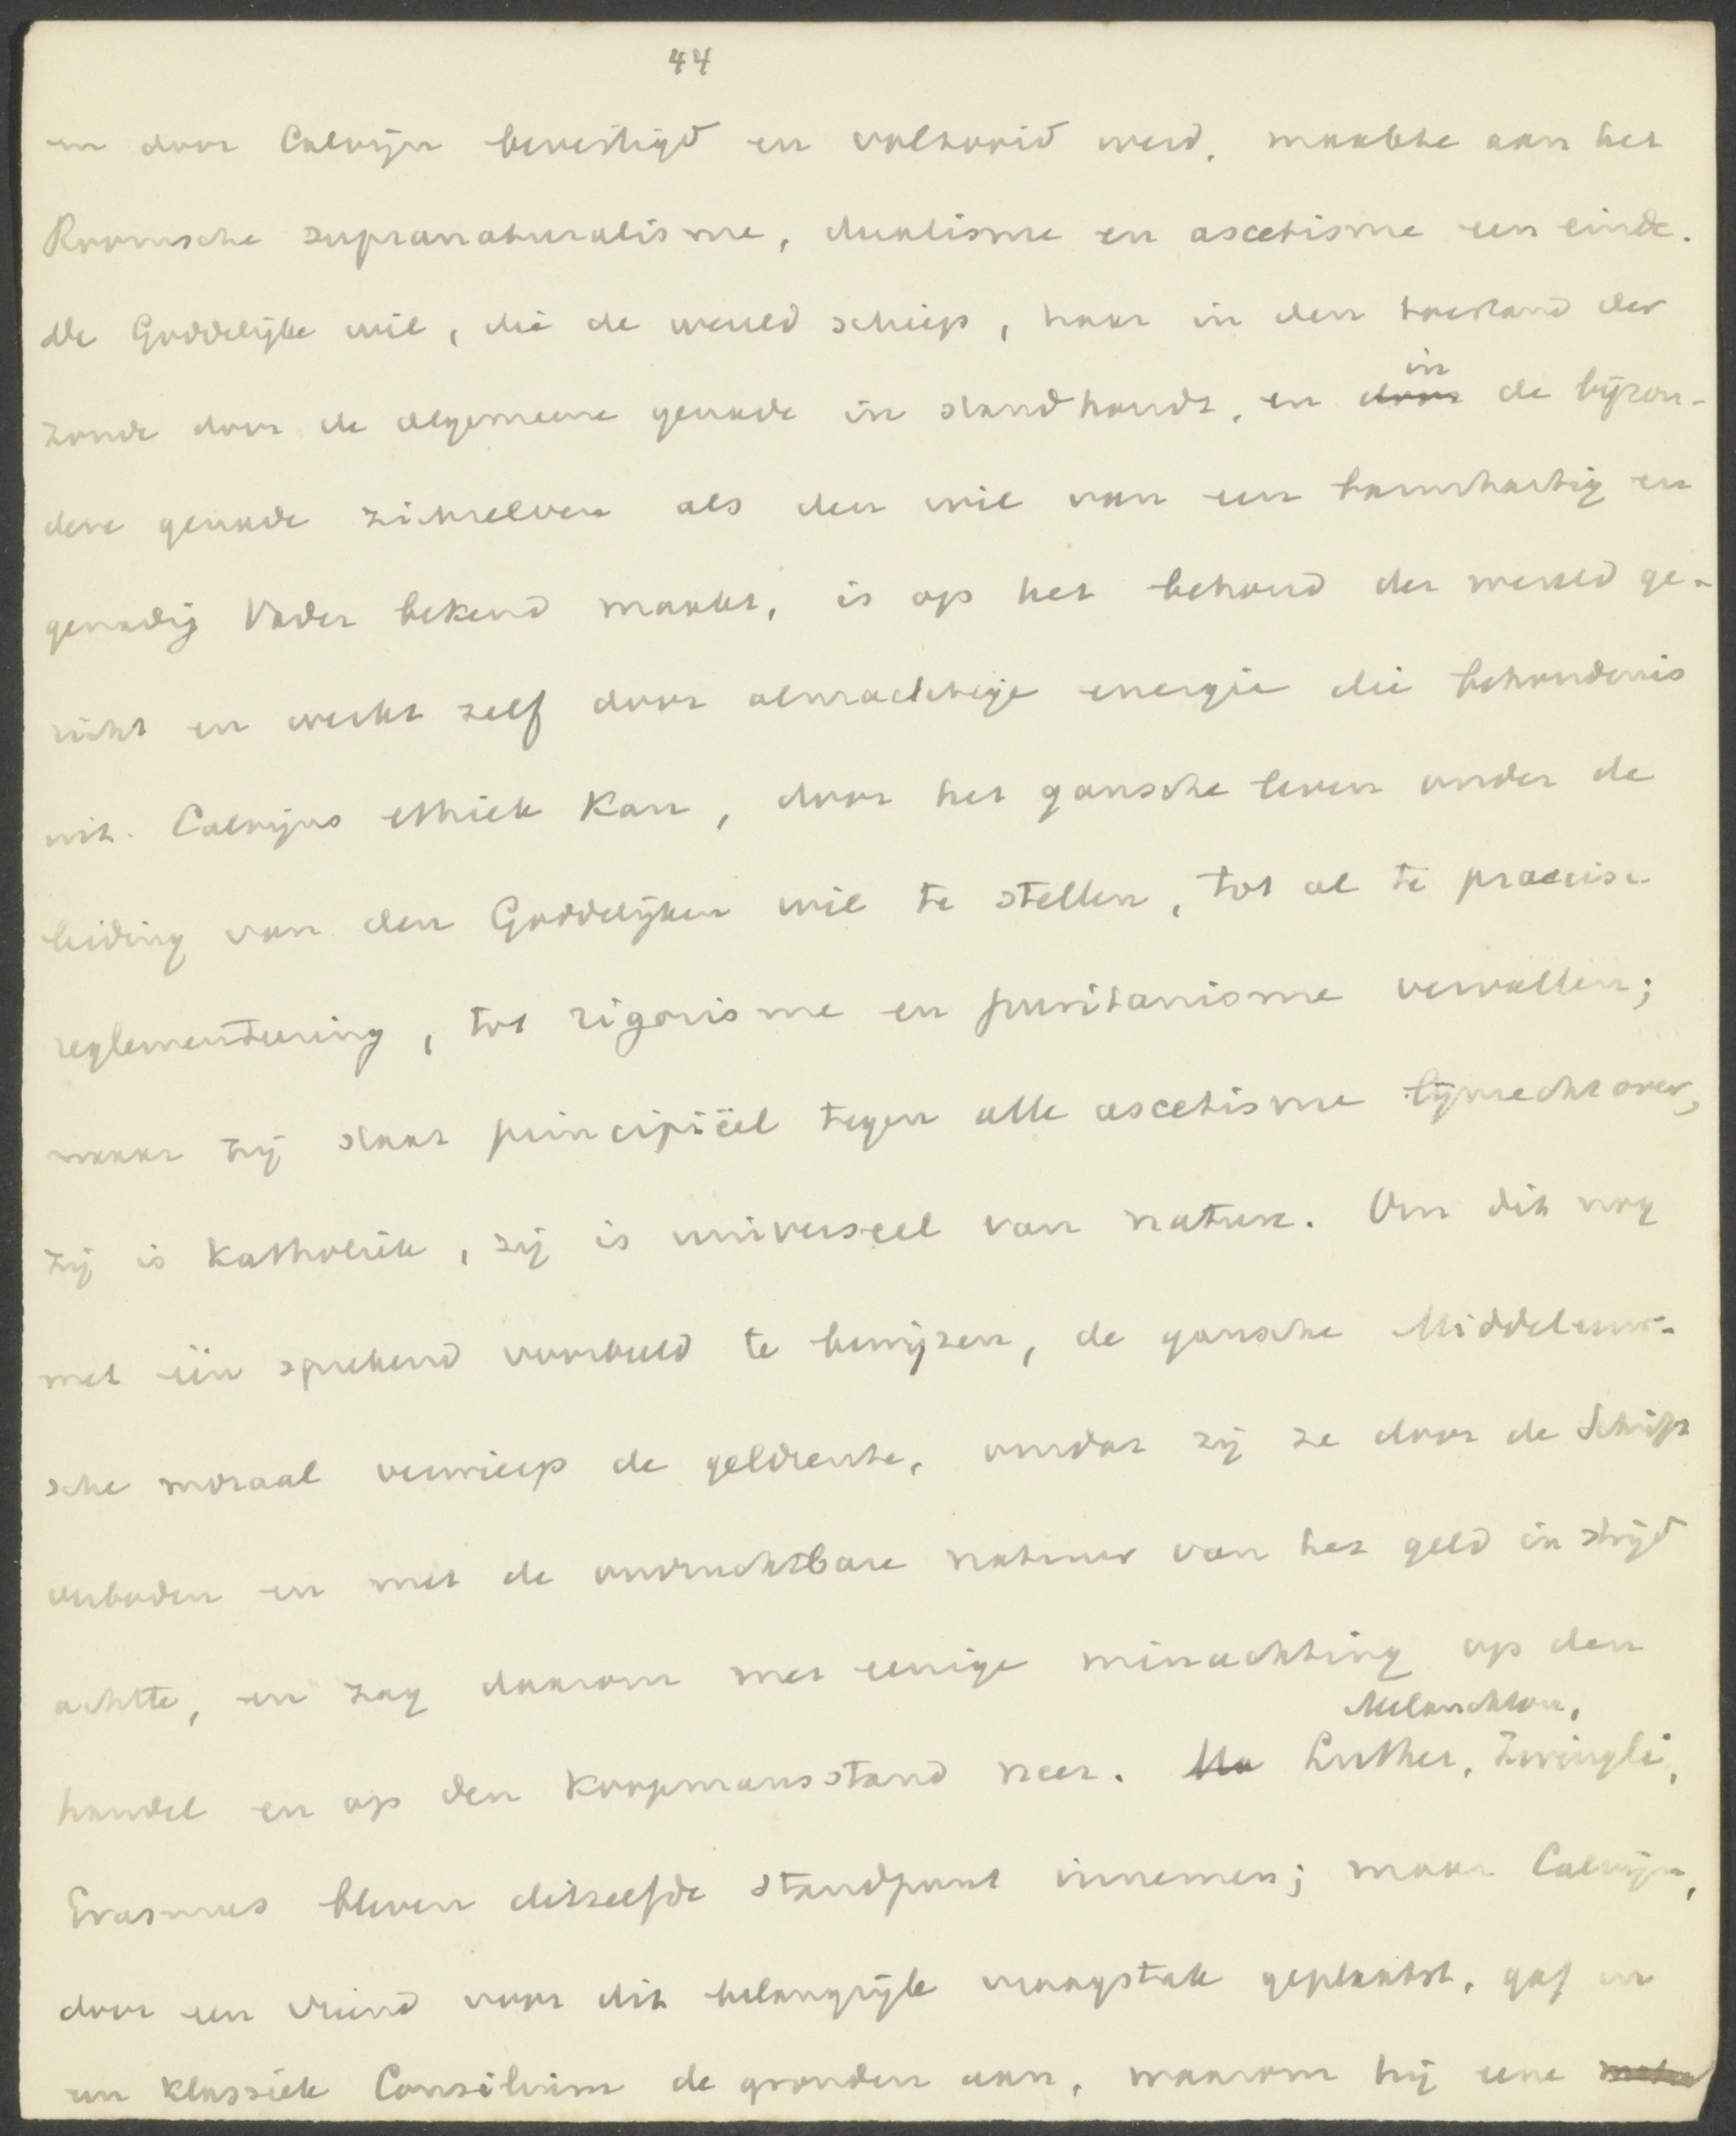 44
en door Calvijn bevestigd en voltooid werd, maakte aan het
Roomsche supranaturalisme, dualisme en ascetisme een einde.
De Goddelijke wil, die de wereld schiep, haar in den toestand der
zonde door de algemeene genade in stand houdt, en door in de bijzon-
dere genade zichzelven als den wil van een barmhartig en
genadig Vader bekend maakt, is op het behoud der wereld ge-
richt en werkt zelf door almachtige energie die behoudenis
uit. Calvijns ethiek kan, door het gansche leven onder de
leiding van den Goddelijken wil te stellen, tot al te praecise
reglementeering, tot rigorisme en puritanisme vervallen;
maar zij staat principiëel tegen alle ascetisme lijnrecht over,
zij is katholiek, zij is universeel van nature. Om dit nog
met één sprekend voorbeeld te bewijzen, de gansche Middeleeuw-
sche moraal verwierp de geldrente, omdat zij ze door de Schrift
verboden en met de onvruchtbare natuur van het geld in strijd
achtte, en zag daarom met eenige minachting op den
handel en op den koopmansstand neer. Ma Luther, Melanchton, Zwingli,
Erasmus bleven ditzelfde standpunt innemen; maar Calvijn,
door een vriend voor dit belangrijk vraagstuk geplaatst, gaf in
een klassiek Consilium de gronden aan, waarom hij eene